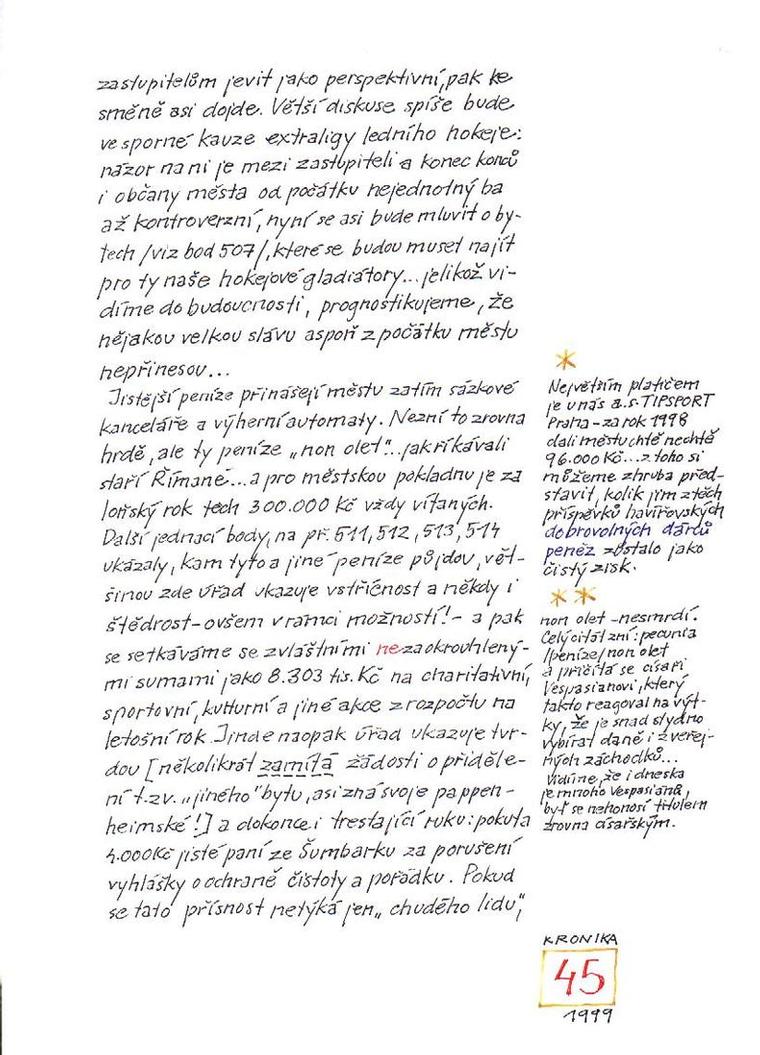 zastupitelům jevit jako perspektivní, pak ke
směně asi dojde. Větší diskuse spíše bude
ve sporné kauze extraligy ledního hokeje:
názor na ni je mezi zastupiteli a konec konců
i občany města od počátku nejednotný ba
až kontroverzní, nyní se asi bude mluvit o by-
tech /viz bod 507/, které se budou muset najít
pro ty naše hokejové gladiátory... jelikož vi-
díme do budoucnosti, prognostikujeme, že
nějakou velkou slávu aspoň z počátku městu
nepřinesou...
Jistější peníze přinášejí městu zatím sázkové
kanceláře a výherní automaty. Nezní to zrovna
hrdě, ale ty peníze „non olet"... jak říkávali
staří Římané... a pro městskou pokladnu je za
loňský rok těch 300.000 Kč vždy vítaných.
Další jednací body, na př. 511, 512, 513, 514
ukázaly, kam tyto a jiné peníze půjdou, vět-
šinou zde úřad ukazuje vstřícnost a někdy i
štědrost - ovšem v rámci možností! - a pak
se setkáváme se zvláštními nezaokrouhlený-
mi sumami jako 8.303 tis. Kč na charitativní,
sportovní, kulturní a jiné akce z rozpočtu na
letošní rok. Jinde naopak úřad ukazuje tvr-
dou [několikrát zamítá žádosti o přiděle-
ní t.zv. „jiného" bytu, asi zná svoje pappen-
heimské!] a dokonce i trestající ruku: pokuta
4.000Kč jisté paní ze Šumbarku za porušení
vyhlášky o ochraně čistoty a pořádku. Pokud
se tato přísnost netýká jen „chudého lidu",
*
Největším platičem
je u nás a.s. TIPSPORT
Praha - za rok 1998
dali městu chtě nechtě
96.000 Kč... z toho si
můžeme zhruba před-
stavit, kolik jim z těch
příspěvků havířovských
dobrovolných dárců
peněz zůstalo jako
čistý zisk.
* *
non olet - nesmrdí.
Celý citát zní: pecunia
/peníze/ non olet
a přičítá se císaři
Vespasianovi, který
takto reagoval na výt-
ky, že je snad stydno
vybírat daně i z veřej-
ných záchodků...
Vidíme, že i dneska
je mnoho Vespasianů,
byť se nehonosí titulem
zrovna císařským.
KRONIKA
45
1999